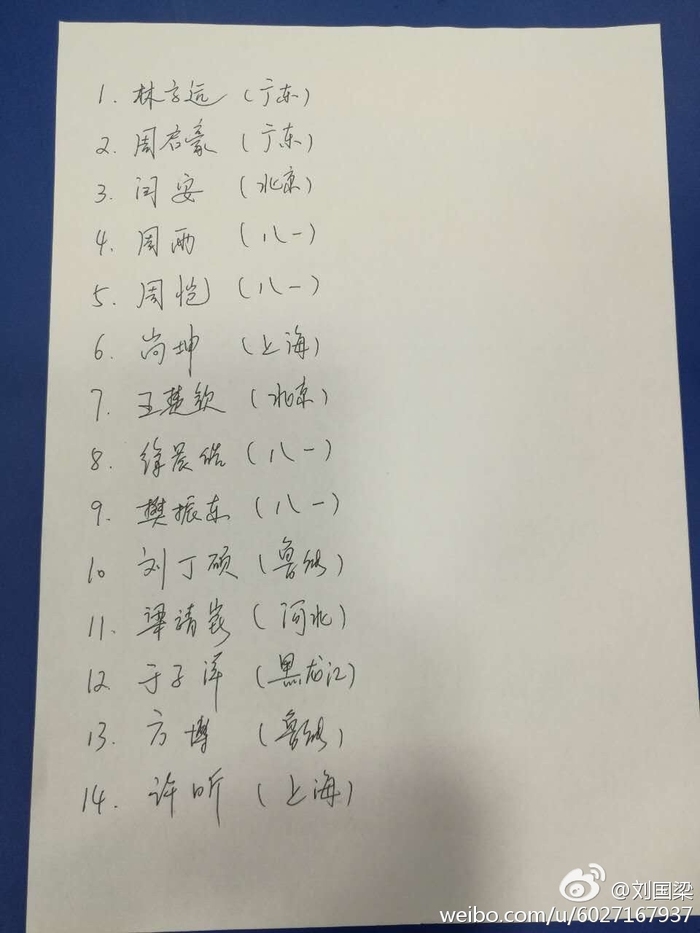 1. 林高远 (广东)
2. 周启豪 (广东)
3. 闫安 (北京)
4. 周雨 (八一)
5. 周恺 (八一)
6. 尚坤 (上海)
7. 王楚钦 (北京)
8. 徐晨皓 (八一)
9. 樊振东 (八一)
10 刘丁硕 (鲁能)
11. 梁靖崑 (河北)
12. 于子洋 (黑龙江)
13. 方博 (鲁能)
14. 许昕 (上海)
@刘国梁
weibo.com/u/6027167937